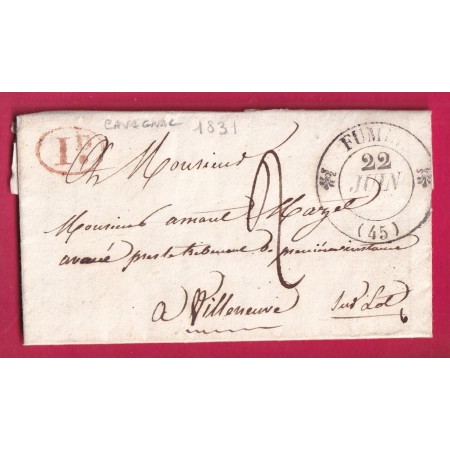 CAVAGNAC 1831
1D
FUMEL
22
JUIN
(45)
2
A Monsieur
Monsieur amant Mazel
avoué près le tribunal de première instance
a Villeneuve Sur Lot